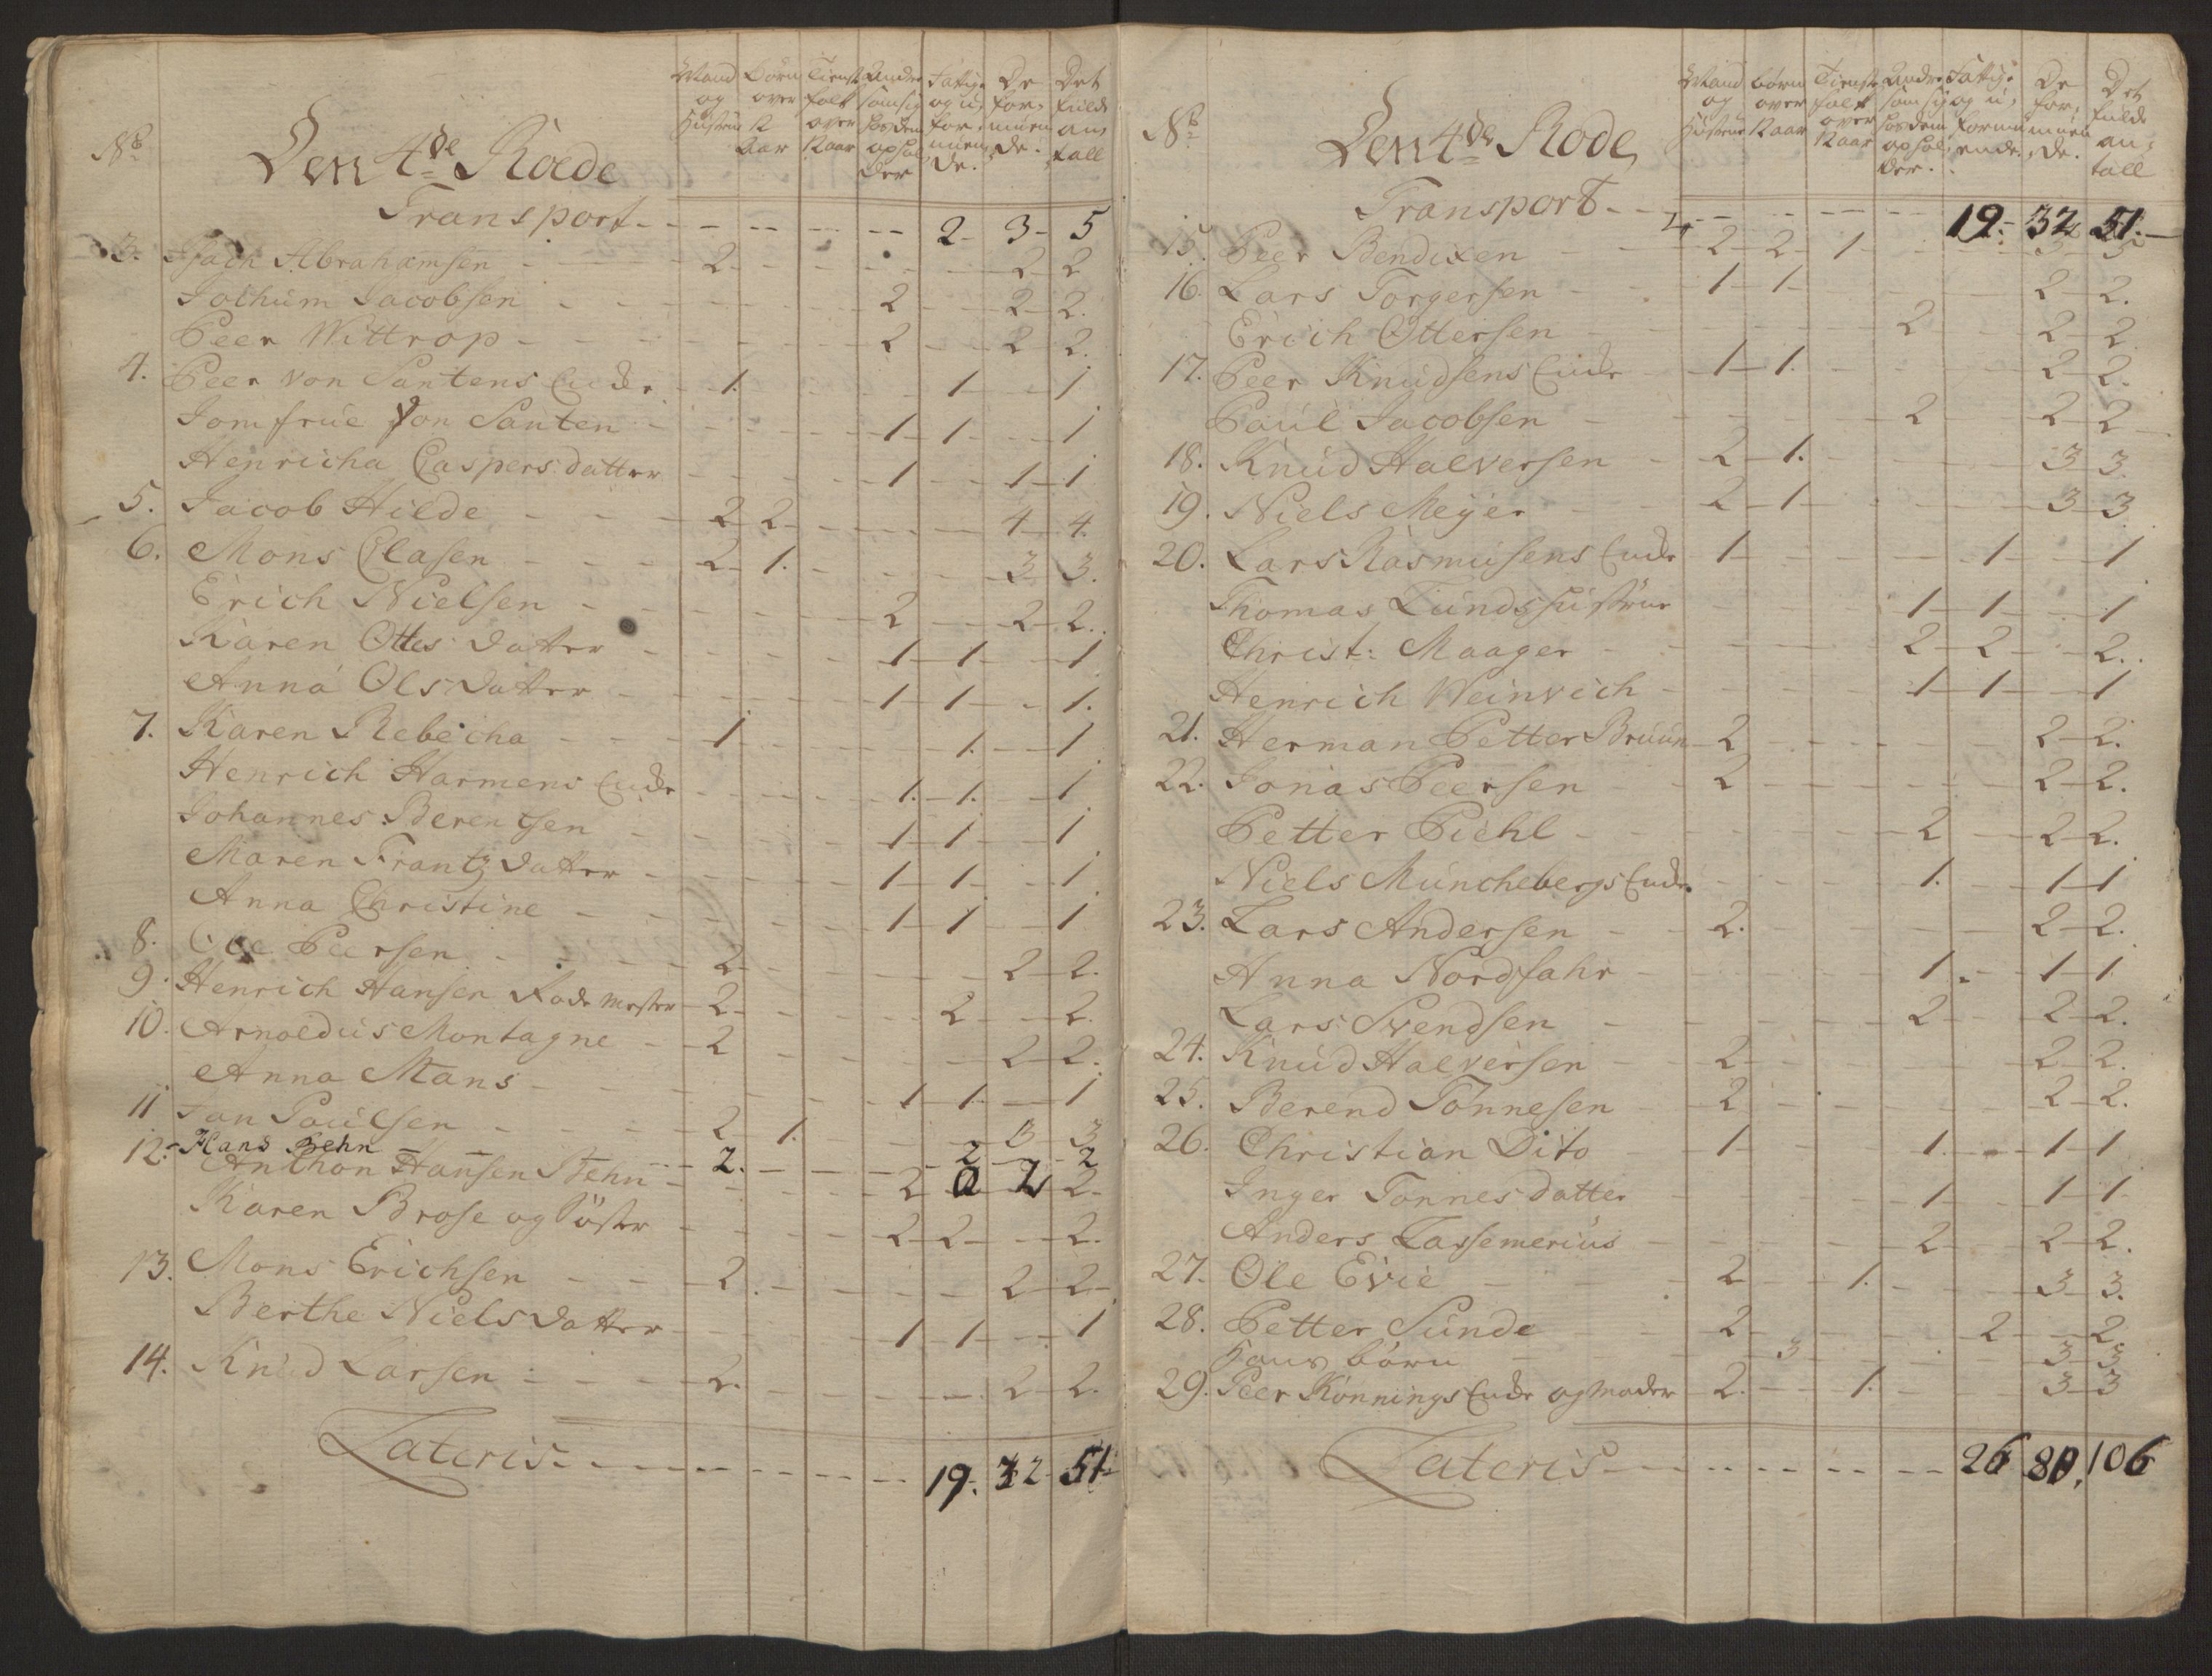 No Den 4de Rode
Mand og Hustrue
Børn over 12 Aar
Tienste folk over 12 aar
Andre som sig hos dem ophol der
Fattige og u for muen de.
De for muen de.
Det fulde an tall
Transport - - - - 2 - 3 - 5
3. Isach Abrahamsen - 2 - - 2 - 2
Jochum Jacobsen - - 2 - 2 - 2.
Peer Wittrop - - 2 - 2 2.
4. Peer von Santens Encke - 1. - 1 - 1
Jomfrue von Santen - 1 - 1 - 1
Henricha Caspers datter - 1 - 1 - 1
5. Jacob Hilde - 2 - 2 - 4 - 4.
6. Mons Clasen - 2 - 1. - 3 3.
Erich Nielsen - 2 - 2 - 2.
Karen Ottes datter - 1 - 1 - 1
Anna Ols datter - 1 - 1 - 1.
7. Karen Rebecha - 1 - 1. - 1
Henrich Harmens Encke - 1. - 1. - 1
Johannes Berentsen - 1 - 1 - 1
Maren Frantz datter - 1 - 1 - 1
Anna Christine - 1 - 1 - 1
8. Ole Peersen - 2 - 2 - 2.
9. Henrich Hansen Rode mester - 2 - 2 - 2.
10. Arnoldus Montagne - 2 - 2 - 2.
Anna Mans - 1 - 1 - 1
11 Jan Poulsen - 2 - 1. - 3 3
12. Hans Behn - 2. - 2 - 2
Anthon Hansen Stehn - 2 0 2 2
Karen Brose og Söster - 2 - 2 - 2.
13. Mons Erichsen - 2. - 2 - 2
Berthe Niels datter - 1 - 1 - 1
14. Knud Larsen - 2. - 2 - 2.
Lateris - - - 19. 32 51
No Den 4de Rode
Mand og Hustrue
børn over 12 aar
Tienste folk over 12 aar
Andre som sig hos dem ophol der.
Fattige og u formu ende.
De for muen de.
Det fulde an tall
Transport - - - 19. - 32 51. -
15. Peer Bendixen - 2 - 2 - 1 - 5 5
16. Lars Torgersen - 1 - 1 - 2 - 2.
Erich Ottersen - 2 - 2 - 2
17. Peer Knudsens Encke - 1 - 1. - 2 - 2.
Poul Jacobsen - 2 - 2 - 2
18. Knud Halversen - 2 - 1. - 3 3.
19. Niels Meyer - 2 - 1 - 3 - 3
20. Lars Rasmusens Encke - 1 - 1 - 1
Thomas Lunds Hustrue - 1 - 1 - 1
Christ: Maager - 2 - 2 - 2.
Henrich Weinrich - 1 - 1 - 1
21. Herman Petter Bruun - 2 - 2 - 2.
22. Jonas Peersen - 2 - 2 - 2.
Petter Piehl - 2 - 2 2.
Niels Münchebergs Encke - 1. - 1 - 1
23. Lars Andersen - 2. - 2 - 2.
Anna Nordfahr - 1. - 1 - 1
Lars Svendsen - 2 - 2 - 2.
24. Knud Halversen - 2 - 2 - 2.
25. Berend Tönnesen - 2 - 2 - 2.
26. Christian Dito - 1 - 1. - 1 - 1
Inger Tonnes datter - 1 - 1 - 1
Anders Lassemerius - 2 - 2 - 2.
27. Ole Evie - 2 - 1. - 3 - 3.
28. Petter Sunde - 2 - 2 - 2.
Hans børn - 3 - 3 - 3
29. Peer Könnings Encke og moder - 2. - 1. - 3 - 3
Lateris - - - 26 80, 106